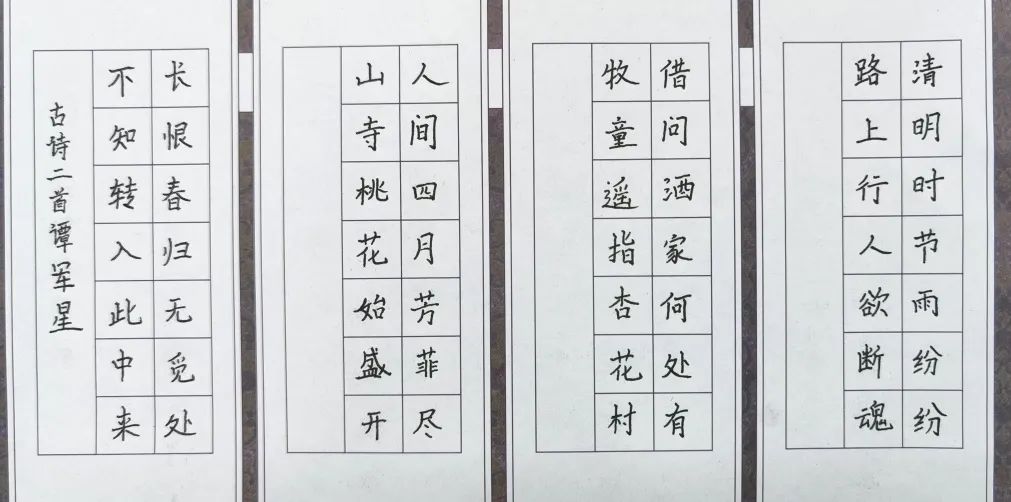 清明时节雨纷纷
路上行人欲断魂
借问酒家何处有
牧童遥指杏花村
人间四月芳菲尽
山寺桃花始盛开
长恨春归无觅处
不知转入此中来
古诗二首谭军星